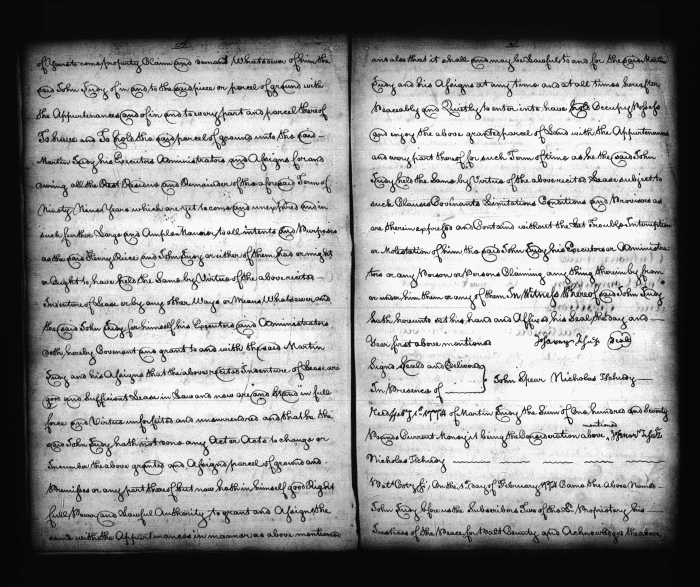 of years to come property Claim and demand Whatsoever of him the
said John Tudy of in and to the said piece or parcel of ground with
the Appurtenances and of in and to every part and parcel thereof
To have and To hold the said parcel of ground unto the said
Martin Tudy his Executors Administrators and Assigns for and
during all the Rest Residue and Remainder of the aforesaid Term of
Ninety Nine Years which are yet to come and unexpired and in
such further Large and Ample Manner to all intents and Purposes
as the said Henry and John Tudy or either of them had or might
or Ought to have held the Same by Virtue of the above recited
Indenture of Lease or by any other Ways or Means Whatsoever and
the said John Tudy for himself his Executors and Administrators
doth hereby Covenant and grant to and with the said Martin
Tudy and his Assigns that the above recited Indenture of Lease are
good and Sufficient Lease in Law and now are and Stand in full
force and Virtue unforfeited and unsurrendered and that he the
said John Tudy hath not done any Act or Acts to change or
Incumber the above granted and Assigned parcel of ground and
Premises or any part thereof but now hath in himself good Right
full Power and Lawful Authority to grant and Assign the
same with the Appurtenances in manner as above mentioned
and also that it shall and may be Lawful to and for the said Martin
Tudy and his Assigns at any time and at all times hereafter
Peaceably and Quietly to enter into have hold Occupy Possess
and enjoy the above granted parcel of Land with the Appurtenances
and every part thereof for such Term of time as he the said John
Tudy held the Same by Virtue of the above recited Lease subject to
such Clauses Covenants Limitations Conditions and Provisoes as
are therein expressed and Contained without the Let Trouble Interruption
or Molestation of him the said John Tudy his Executors or Administra
tors or any Person or Persons Claiming any thing therein by from
or under him them or any of them In Witness Whereof said John Tudy
hath hereunto set his hand and Affixed his Seal the day and
Year first above mentioned Seal
Signed Sealed and Delivered
In Presence of John Spear Nicholas
Recd Feby 1st 1774 of Martin Tudy the Sum of One hundred and Seventy
mentioned
Pounds Current Money it being the Consideration above
Nicholas
Balt County Sc, On the 1st day of February 1774 Came the Above Named
John Tudy before us the Subscribers Two of the Ld Proprietary his
Justices of the Peace for Balt County and Acknowledged the above